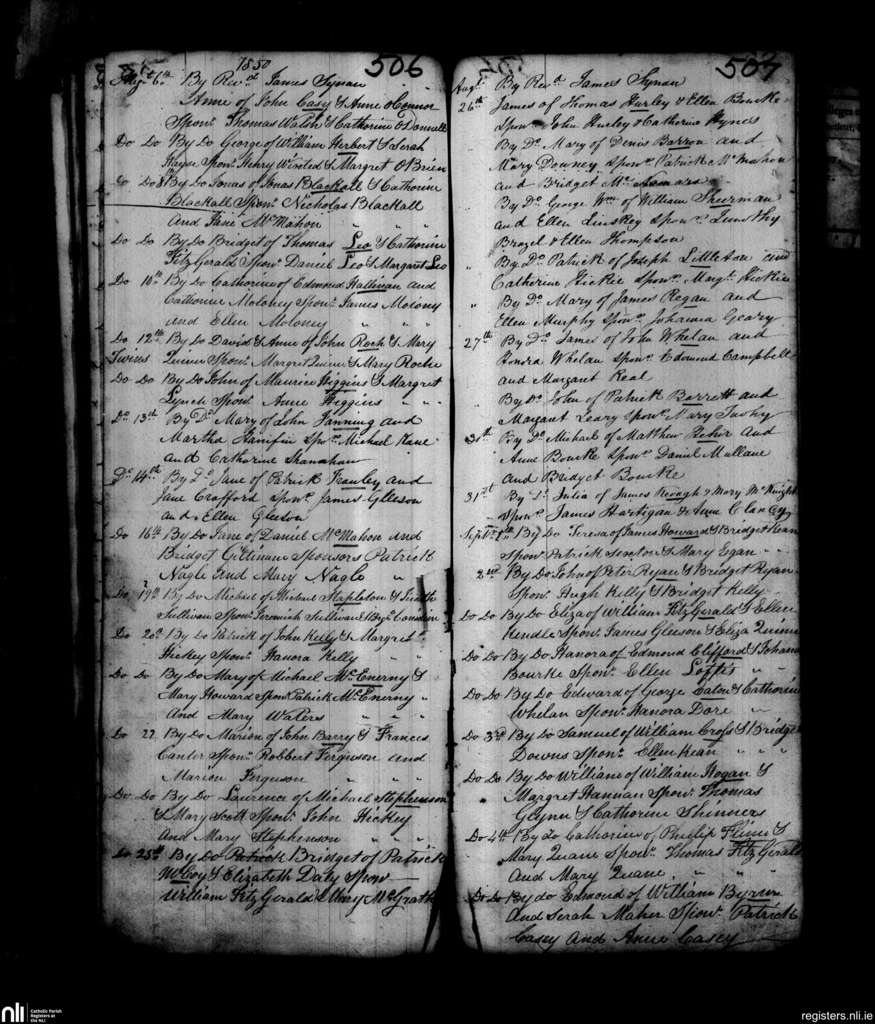 1850 506
Augt 6th By Revd. James Synan
Anne of John Casy & Anne O'Connor
Sponr. Thomas Walsh & Catherine O'Donnell
Do Do By Do George of William Herbert & Serah
Hayse Sponr. Henry Winsled & Margret O'Brien
Do Do 8th By Do Jonas of Jonas Blackall & Cathorine
Blackall Sponr. Nicholas Blackall
And Jane McMahon " " "
Do Do By Do Bridget of Thomas Leo & Cathorine
FitzGerald Sponr. Daniel Leo & Margaret Leo
Do 10th By Do Cathorine of Edmond Hallinan and
Cathorine Molohey Sponr. James Molony
and Ellen Molony " " "
Do 12th By Do David & Anne of John Roch & Mary
Twins Quinn Sponr. Margret Quinn & Mary Roche
Do Do By Do John of Maurice Higgins & Margret
Lynch Sponr. Anne Higgins " " "
Do 13th By Do Mary of John Fanning and
Martha Hanifin Sponr. Michael Kane
and Catherine Shanahan
Do 14th By Do Jane of Patrick Frawley and
Jane Crofford Sponr. James Gleeson
and Ellen Gleeson
Do 16th By Do Jane of Daniel McMahon and
Bridget Cttinane Sponsors Patrick
Nagle And Mary Nagle "
Do 19th By Do Michael of Michael Stapleton & Judith
Sullivan Sponr. Jeremiah Sullivan & Bgt. Considin
Do 20th By Do Patrick of John Kelly & Margret
Hickey Sponr. Hanora Kelly " "
Do Do By Do Mary of Michael McEnerny &
Mary Howard Sponr Patrick McEnerny "
And Mary Waters " " "
Do 22 By Do Marion of John Barry & Frances
Canter Sponr. Robbert Ferguson and
Marion Ferguson " " "
Do Do By Do Laurence of Michael Stephenson
& Mary Scott Sponr. John Hickey
And Mary Stephenson " " "
Do 25th By Do Patrick Bridget of Patrick
McCoy & Elizabeth Daly Sponr
William FitzGerald & Mary McGrath
507
Augt. By Revd. James Synan
26th James of Thomas Hurley & Ellen Bourke
Sponr. John Hurley & Catherine Hynes
By Do. Mary of Denis Barron and
Mary Downey Sponr. Patrick McMahon
and Bridget McNamara
By Do. George Wm of William Shurman
and Ellen Linskey Sponr. Timothy
Brazel & Ellen Thompson
" By Do. Patrick of Joseph Littleton and
Catherine Hickie Sponr. Margt. Hickie
" By Do. Mary of James Regan and
Ellen Murphy Sponr. Johanna Geary
27th By Do. James of John Whelan and
Honora Whelan Sponr. Edmond Campbell
and Margaret Real
By Do. John of Patrick Barrett and
Margaret Leary Sponr. Mary
30th By Do. Michael of Matthew and
Anne Bourke Sponr. Daniel Mullane
and Bridget Bourke
31st By Do. Julia of James Keough & Mary McKnight
Sponr. James Hartigan & Anne Clancy
Septr. 1st By Do Teresa of James Howard & Bridget Kean
Sponr. Patrick Senton & Mary Egan " "
2nd By Do John of Peter Ryan & Bridget Ryan
Sponr. Hugh Kelly & Bridget Kelly
Do Do By Do Eliza of William FitzGerald & Ellen
Kendle Sponr. James Gleeson & Eliza Quinn
Do Do By Do Hanora of Edmond Clifford & Johana
Bourke Sponr. Ellen Loftis " "
Do Do By Do Edward of George Eaton & Cathorin
Whelan Sponr. Hanora Dore "
Do 3rd By Do Samuel of William Cross & Bridget
Downs Sponr. Ellen Kean " " "
Do Do By Do William of William Hogan &
Margret Hannan Sponr. Thomas
Glynn & Cathorine Skinners
Do 4th By do Cathorine of Phillip Flinn &
Mary Quane Sponr. Thomas FitzGerald
And Mary Quane " " "
Do Do By do Edmond of William Byrnn
And Serah Maher Sponr. Patrick
Casey And Anne Casey
nli Catholic Parish Registers at the NLI
registers.nli.ie